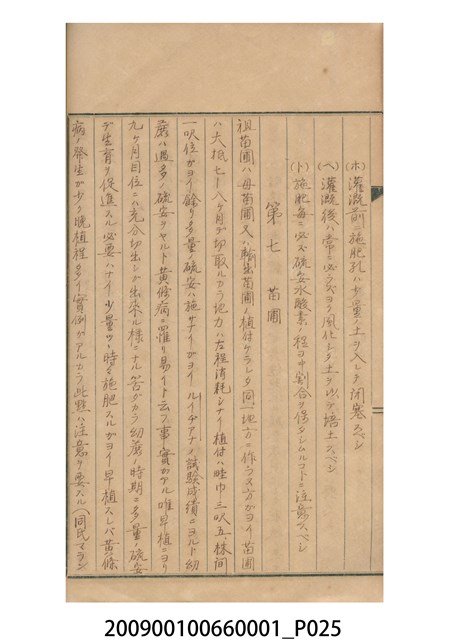 (ホ) 灌漑前ニ施肥孔ハ少量ノ土ヲ入レテ閉塞スベシ
(ヘ) 灌漑後ハ常ニ必ラズヨク風化シタ土ヲ以テ培土スベシ
(ト) 施肥毎ニ必ズ硫安水酸素ノ程ヨキ割合ヲ保タシムルコトニ注意スベシ
第七 苗圃
祖苗圃ハ母苗圃又ハ輸出苗圃ノ植付ケラレタ同一地方ニ作ラス方がヨイ 苗圃
ハ大抵七一八ヶ月デ切取ルカラ地力ハ左程消耗シナイ植付ハ畦巾三呎五株間
一呎位がヨイ餘リ多量ノ硫安ハ施サナイがヨイルイヂアナノ試驗成績ニヨルト幼
蔗ハ過多ノ硫安ヲヤルト黄條病ニ罹リ易イト云フ事實がアル唯早植ニヨリ
九ヶ月目位ニハ充分切出シが出來ル樣ニナル筈ダカラ幼蔗ノ時期ニ多量ノ硫安
デ生育ヲ促進スル必要ハナイ少量ヅヽ時々施肥スルがヨイ早植スレバ黄條
病ノ發生が少ク晩植程多イ實例がアルカラ此點ハ注意ヲ要スル(同氏マヨン
200900100660001_P025